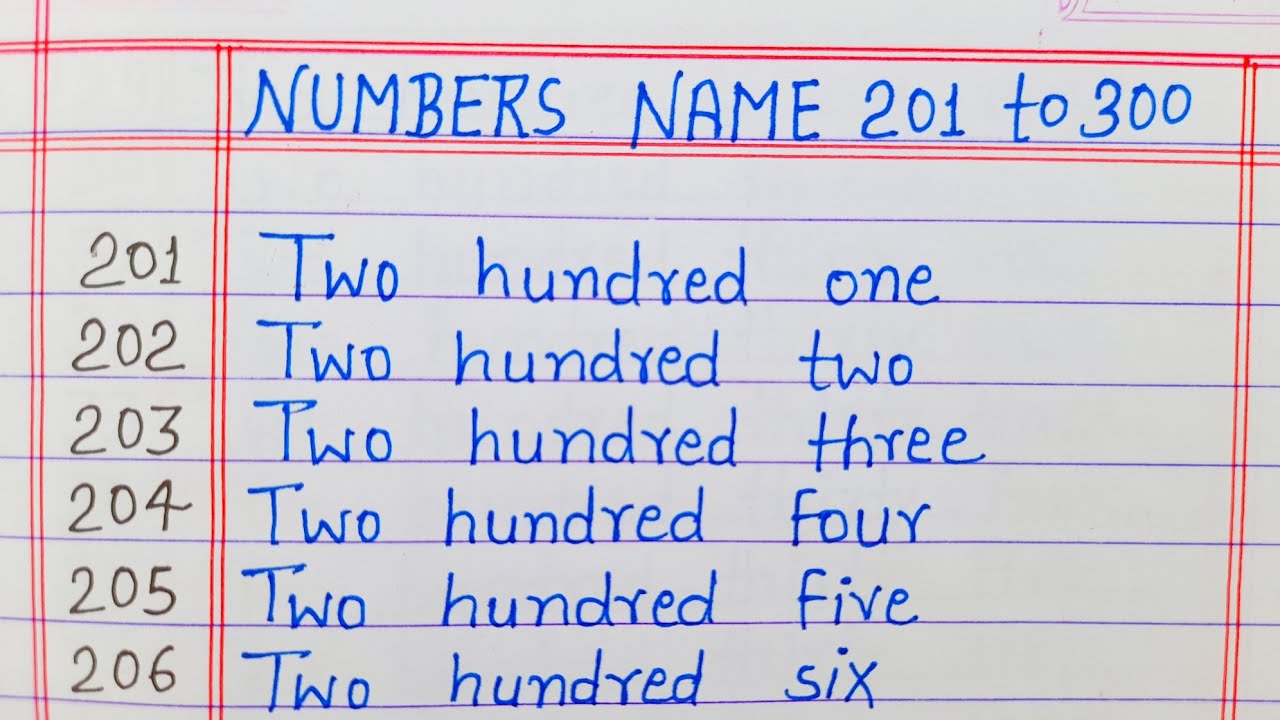 NUMBERS NAME 201 to 300
201 Two hundred one
202 Two hundred two
203 Two hundred three
204 Two hundred four
205 Two hundred five
206 Two hundred six